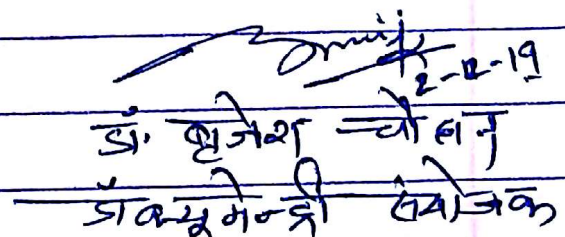 2-12-19
डॉ. बृजेश चौहान
डॉक्यूमेन्ट्री संयोजक